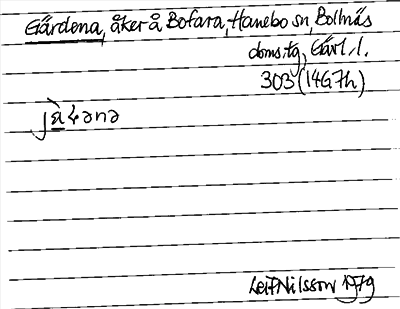 Gärdena, åker å Bofara, Hanebo sn, Bollnäs
doms.tg, Gävl. l.
303 (14G7h)
Leif Nilsson 1979